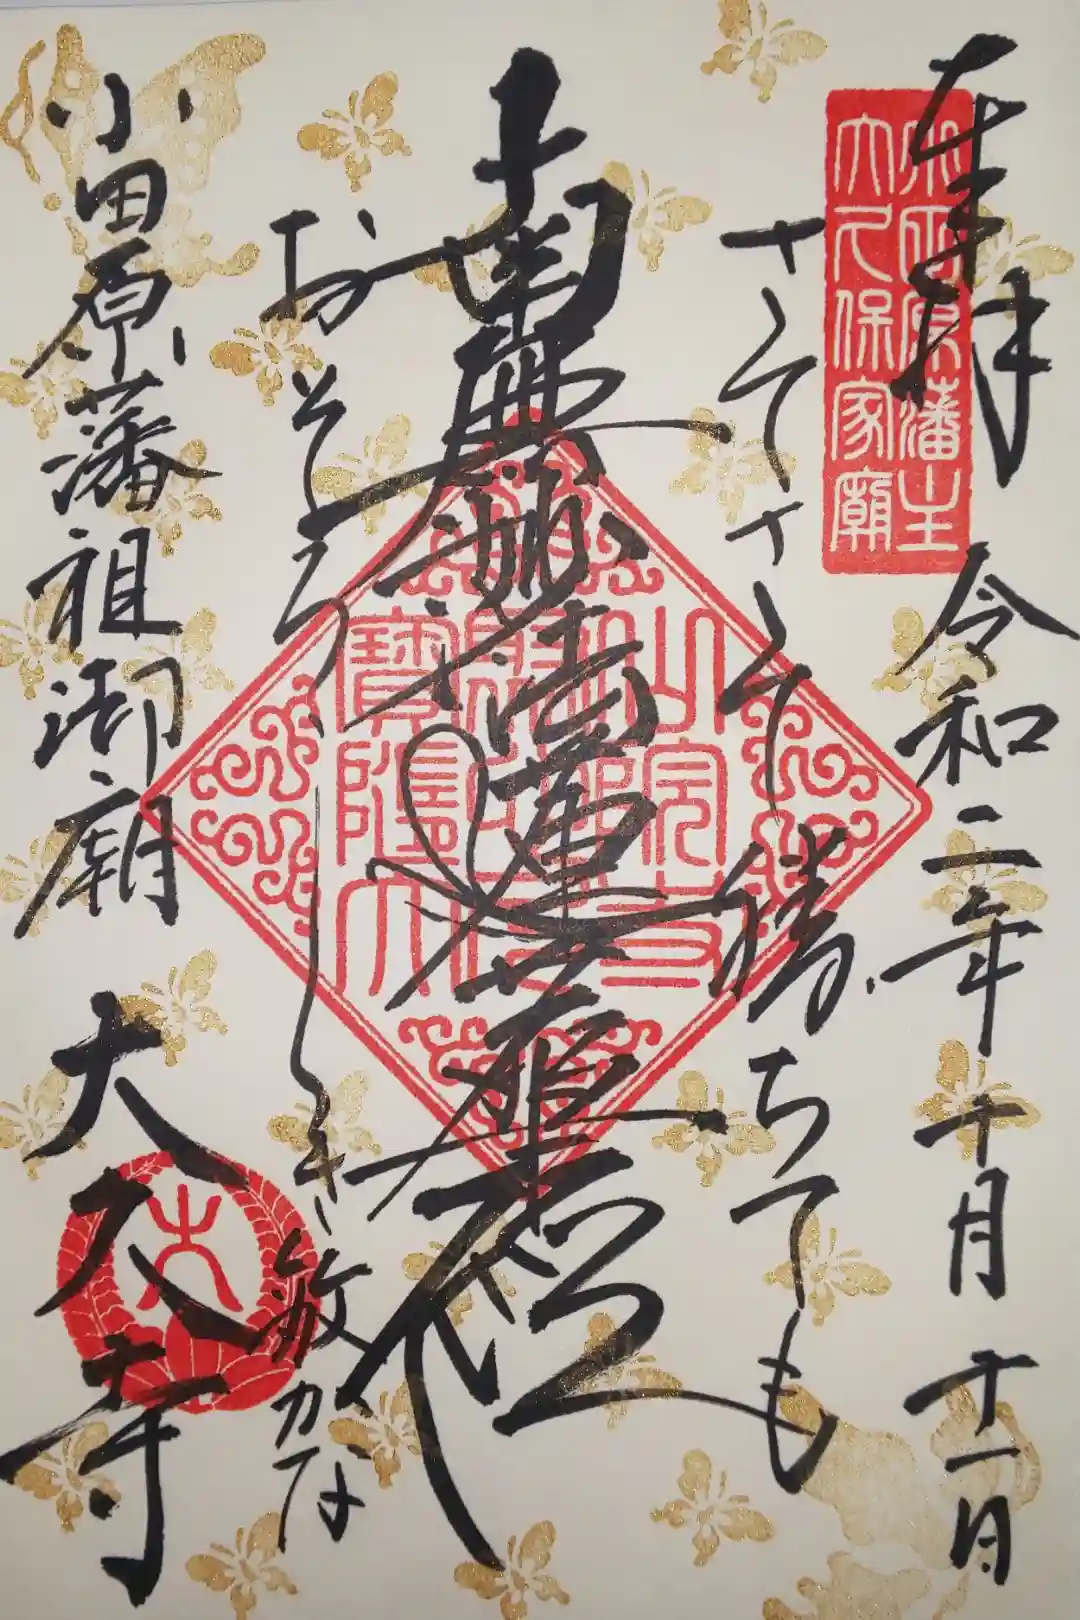 奉拝 令和二年十月十一日
小田原藩主
大久保家廟
さてさて 勝ちても
南無妙法蓮華経
おそろしき敵かな
小田原藩祖御廟 大久寺
大